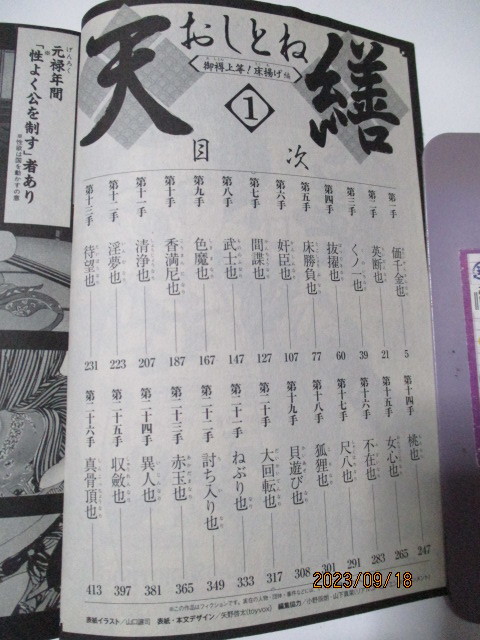 おしとね
天繕
御褥上等!床揚げ編
1
目次
第一手 価千金也 5
第二手 英断也 21
第三手 くノ一也 39
第四手 抜擢也 60
第五手 床勝負也 77
第六手 奸臣也 107
第七手 間諜也 127
第八手 武士也 147
第九手 色魔也 167
第十手 香満尼也 187
第十一手 清浄也 207
第十二手 淫夢也 223
第十三手 待望也 231
第十四手 桃也 247
第十五手 女心也 265
第十六手 不在也 283
第十七手 尺八也 291
第十八手 狐狸也 301
第十九手 貝遊び也 308
第二十手 大回転也 317
第二十一手 ねぶり也 333
第二十二手 討ち入り也 349
第二十三手 赤玉也 365
第二十四手 異人也 381
第二十五手 収斂也 397
第二十六手 真骨頂也 413
元禄年間
「性よく公を制す」者あり
※性欲は国を動かすの意
※この作品はフィクションです。
表紙イラスト/山口譲司 表紙・本文デザイン/天野昌太(toyvox) 編集協力/
2023/09/18